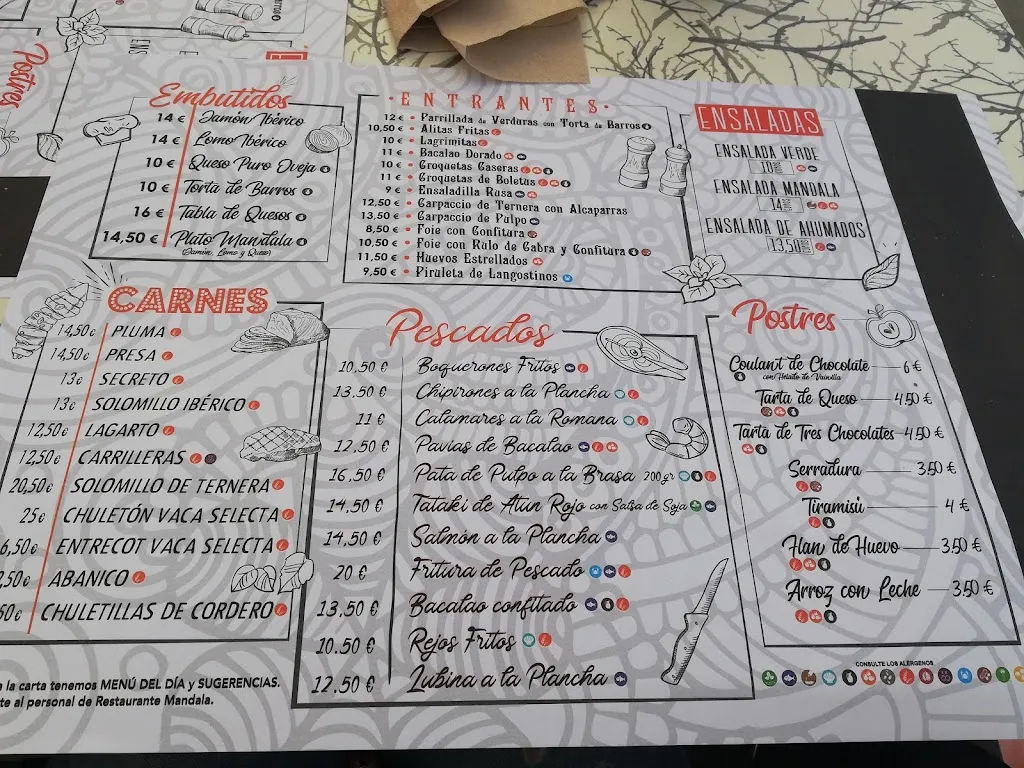 Postres
Embutidos
14 € Jamón Ibérico
14 € Lomo Ibérico
10 € Queso Puro Oveja
10 € Torta de Barros
16 € Tabla de Quesos
14,50 € Plato Mandala
(Jamón, Lomo y Queso)
·ENTRANTES·
12 € • Parrillada de Verduras con Torta de Barros
10,50 € • Alitas Fritas
10 € • Lagrimitas
11 € • Bacalao Dorado
10 € • Croquetas Caseras
11 € • Croquetas de Boletus
9 € • Ensaladilla Rusa
12,50 € • Carpaccio de Ternera con Alcaparras
13,50 € • Carpaccio de Pulpo
8,50 € • Foie con Confitura
10,50 € • Foie con Rulo de Cabra y Confitura
11,50 € • Huevos Estrellados
9,50 € • Piruleta de Langostinos
ENSALADAS
ENSALADA VERDE
10
ENSALADA MANDALA
14
ENSALADA DE AHUMADOS
13,50
CARNES
14,50€ PLUMA
14,50€ PRESA
13€ SECRETO
13€ SOLOMILLO IBÉRICO
12,50€ LAGARTO
12,50€ CARRILLERAS
20,50€ SOLOMILLO DE TERNERA
25€ CHULETÓN VACA SELECTA
6,50€ ENTRECOT VACA SELECTA
,50€ ABANICO
50€ CHULETILLAS DE CORDERO
Pescados
10,50 € Boquerones Fritos
13,50 € Chipirones a la Plancha
11 € Calamares a la Romana
12,50 € Pavias de Bacalao
16,50 € Pata de Pulpo a la Brasa 200gr
14,50 € Tataki de Atún Rojo con Salsa de Soja
14,50 € Salmón a la Plancha
20 € Fritura de Pescado
13,50 € Bacalao confitado
10.50 € Rejos Fritos
12.50 € Lubina a la Plancha
Postres
Coulant de Chocolate — 6 €
con Helado de Vainilla
Tarta de Queso — 4,50 €
Tarta de Tres Chocolates — 4,50 €
Serradura — 3,50 €
Tiramisú — 4 €
Flan de Huevo — 3,50 €
Arroz con Leche — 3,50 €
CONSULTE LOS ALÉRGENOS
la carta tenemos MENÚ DEL DÍA y SUGERENCIAS.
te al personal de Restaurante Mandala.